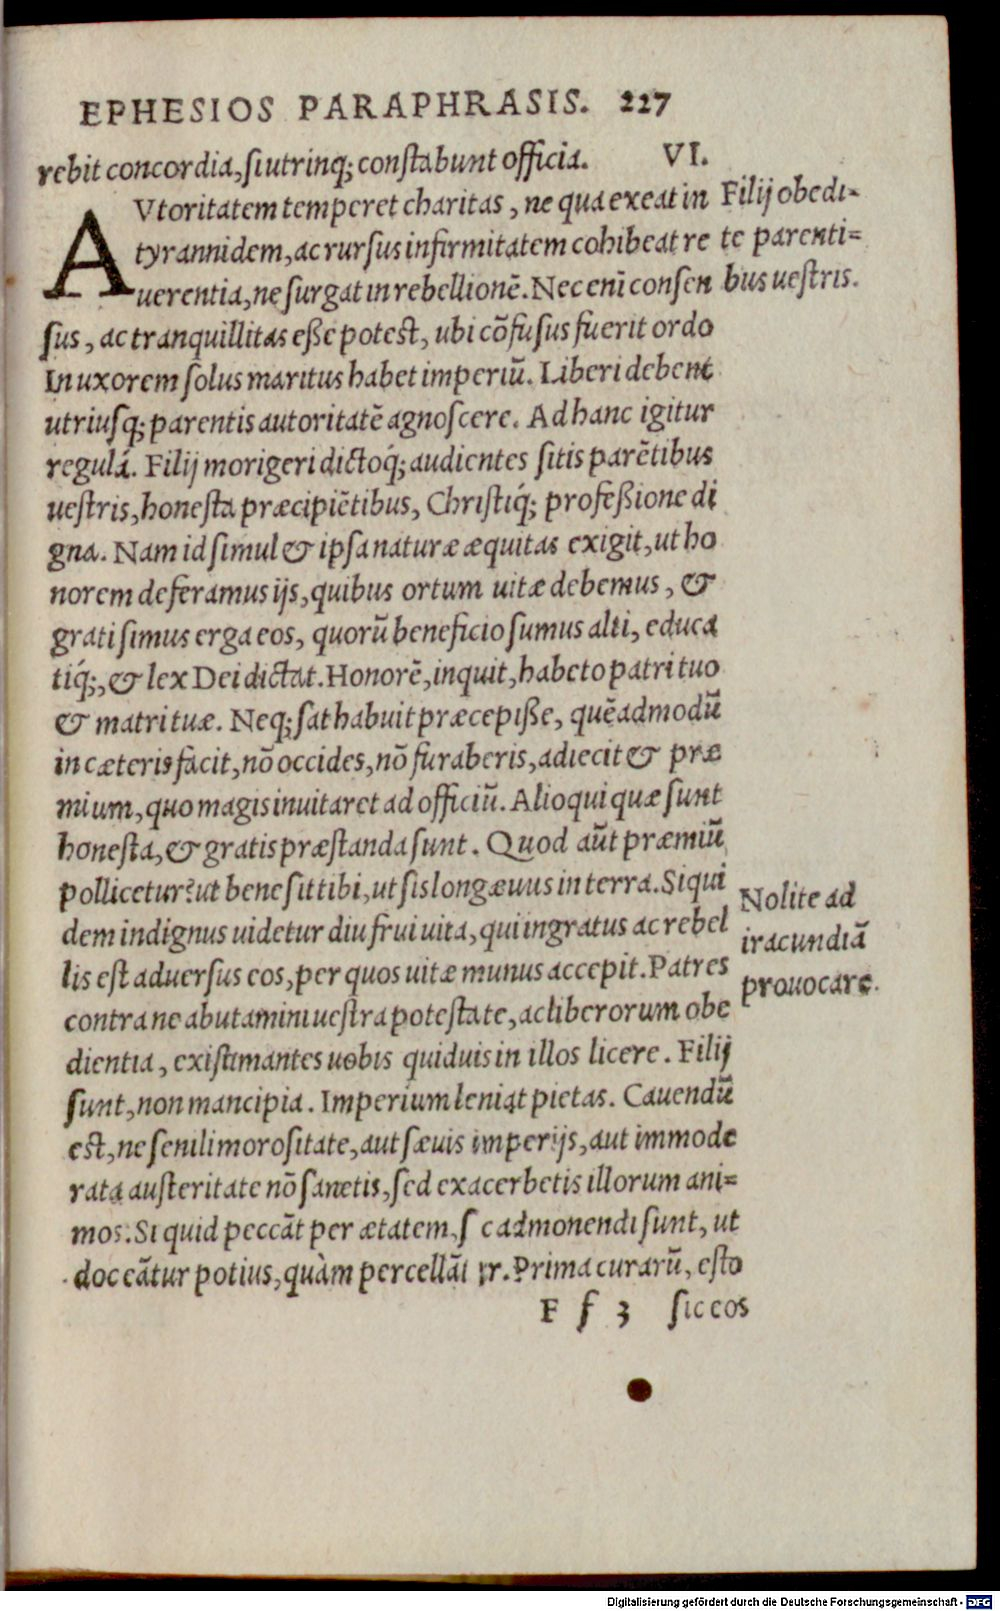 EPHESIOS PARAPHRASIS. 227
rebit concordia, si utrinq; constabunt officia. VI.
AVtoritatem temperet charitas, ne qua exeat in
tyrannidem, ac rursus infirmitatem cohibeat re
uerentia, ne surgat in rebellionē. Nec enī consen
sus, ac tranquillitas eße potest, ubi cōfusus fuerit ordo
In uxorem solus maritus habet imperiū. Liberi debent
utriusq; parentis autoritatē agnoscere. Ad hanc igitur
regulā. Filij morigeri dictoq́; audientes sitis parētibus
uestris, honesta præcipiētibus, Christiq́; profeßione di
gna. Nam id simul & ipsa naturæ æquitas exigit, ut ho
norem deferamus ijs, quibus ortum uitæ debemus, &
grati simus erga eos, quorū beneficio sumus alti, educa
tiq́;, & lex Dei dictat. Honorē, inquit, habeto patri tuo
& matri tuæ. Neq; sat habuit præcepiße, quēadmodū
in cæteris facit, nō occides, nō furaberis, adiecit & præ
mium, quo magis inuitaret ad officiū. Alioqui quæ sunt
honesta, & gratis præstanda sunt. Quod aūt præmiū
pollicetur? ut bene sit tibi, ut sis longæuus in terra. Siqui
dem indignus uidetur diu frui uita, qui ingratus ac rebel
lis est aduersus eos, per quos uitæ munus accepit. Patres
contra ne abutamini uestra potestate, ac liberorum obe
dientia, existimantes uobis quiduis in illos licere. Filij
sunt, non mancipia. Imperium leniat pietas. Cauendū
est, ne senili morositate, aut sæuis imperijs, aut immode
rata austeritate nō sanetis, sed exacerbetis illorum ani=
mos. Si quid peccāt per ætatem, sc admonendi sunt, ut
doceātur potius, quàm percellātur. Prima curarū, esto
F f 3 sic eos
Filij obedi-
te parenti=
bus uestris.
Nolite ad
iracundiā
prouocare.
Digitalisierung gefördert durch die Deutsche Forschungsgemeinschaft - DFG